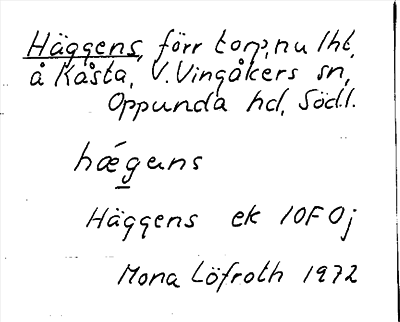 Häggens, förr torp, nu lht,
å Kåsta, V. Vingåkers sn,
Oppunda hd, Södl.
hǽgans
Häggens ek 10F 0j
Mona Löfroth 1972